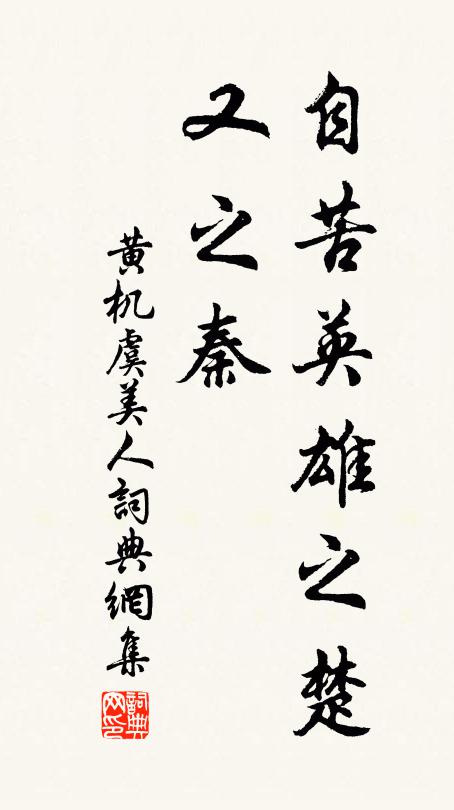 自苦英雄之楚
又之秦
黄机虞美人詞典網集
詞典网印